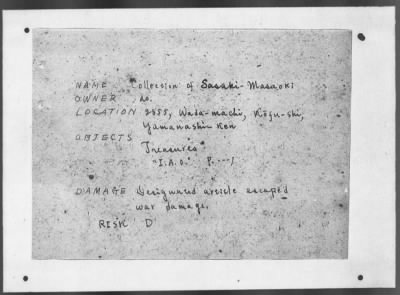 NAME Collection of Sasaki-Masaoki
OWNER do.
LOCATION 2855, Wada-machi, Kōfu-shi,
Yamanashi Ken
OBJECTS
Treasures
"I.A.O." P....1
DAMAGE Designated article escaped
war damage.
RISK D